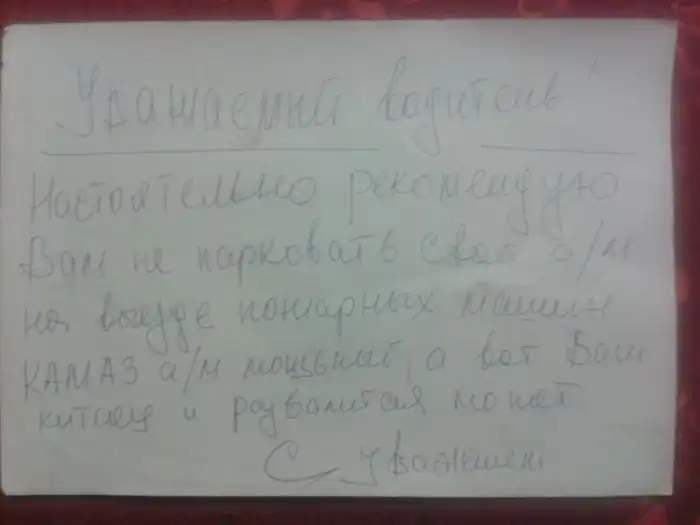 Уважаемый водитель!
Настоятельно рекомендую
Вам не парковать свой а/м
на выезде пожарных машин
КАМАЗ а/м мощьный, а вот Ваш
китаец и развалится может
С уважением